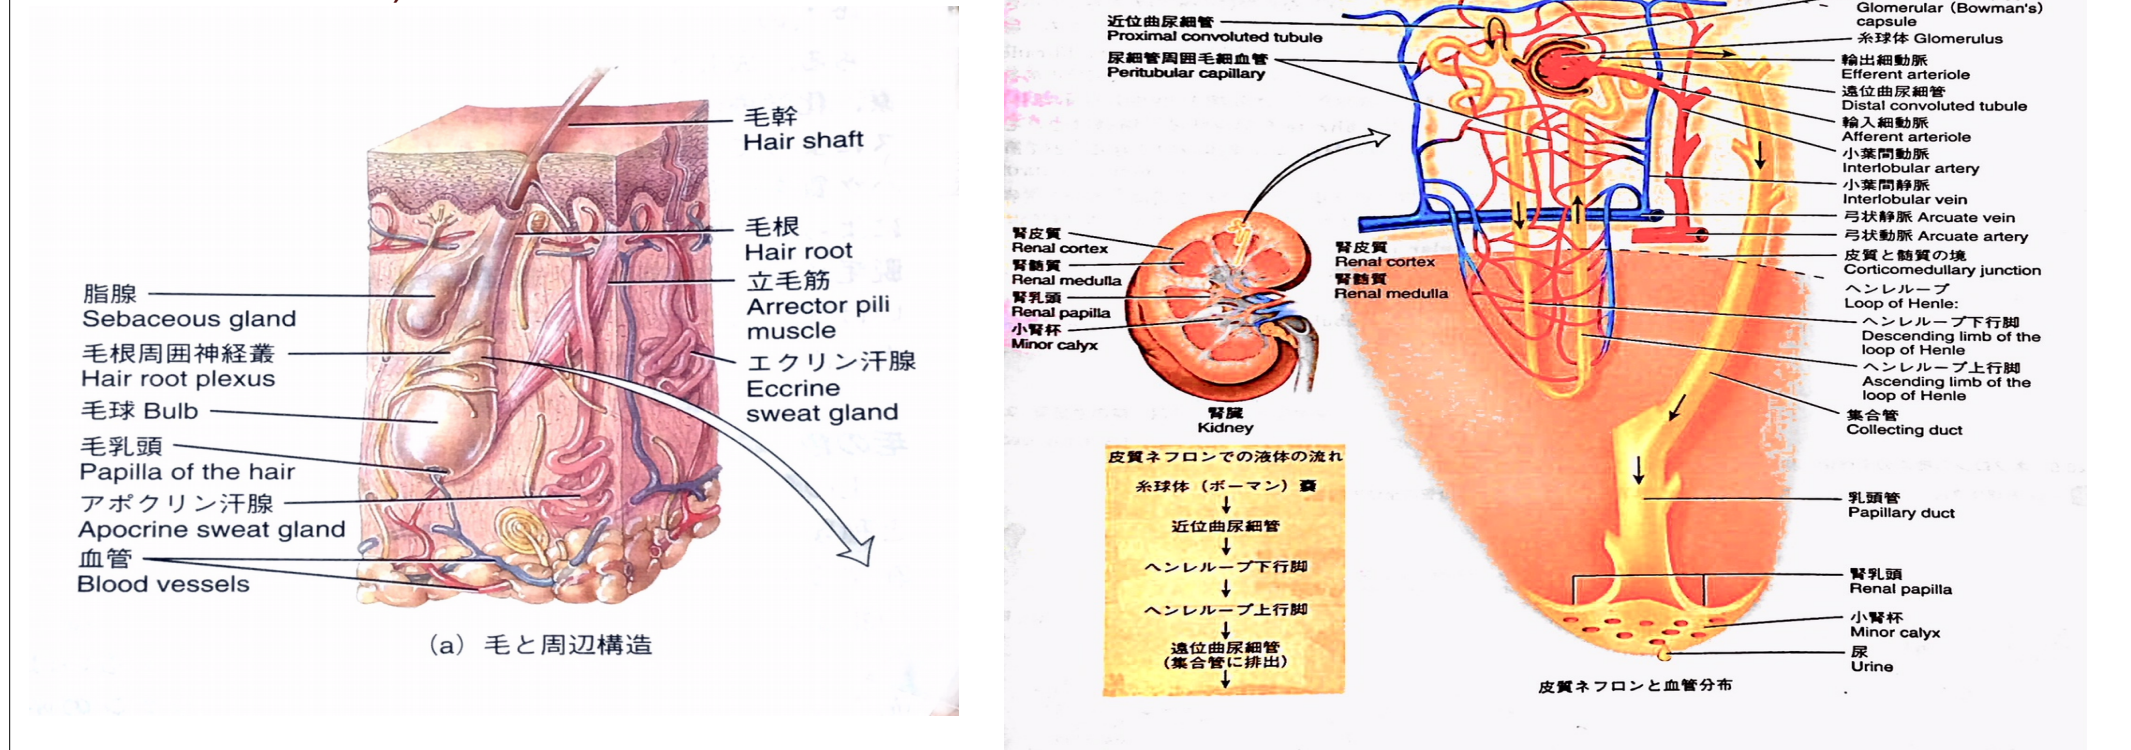 毛幹
Hair shaft
毛根
Hair root
立毛筋
Arrector pili
muscle
エクリン汗腺
Eccrine
sweat gland
脂腺
Sebaceous gland
毛根周囲神経叢
Hair root plexus
毛球 Bulb
毛乳頭
Papilla of the hair
アポクリン汗腺
Apocrine sweat gland
血管
Blood vessels
(a) 毛と周辺構造
近位曲尿細管
Proximal convoluted tubule
尿細管周囲毛細血管
Peritubular capillary
腎皮質
Renal cortex
腎髄質
Renal medulla
腎乳頭
Renal papilla
小腎杯
Minor calyx
腎臓
Kidney
腎皮質
Renal cortex
腎髄質
Renal medulla
皮質ネフロンでの液体の流れ
糸球体（ボーマン）嚢
↓
近位曲尿細管
↓
ヘンレループ下行脚
↓
ヘンレループ上行脚
↓
遠位曲尿細管
(集合管に排出)
↓
Glomerular (Bowman's)
capsule
糸球体 Glomerulus
輸出細動脈
Efferent arteriole
遠位曲尿細管
Distal convoluted tubule
輸入細動脈
Afferent arteriole
小葉間動脈
Interlobular artery
小葉間静脈
Interlobular vein
弓状静脈 Arcuate vein
弓状動脈 Arcuate artery
皮質と髄質の境
Corticomedullary junction
ヘンレループ
Loop of Henle:
ヘンレループ下行脚
Descending limb of the
loop of Henle
ヘンレループ上行脚
Ascending limb of the
loop of Henle
集合管
Collecting duct
乳頭管
Papillary duct
腎乳頭
Renal papilla
小腎杯
Minor calyx
尿
Urine
皮質ネフロンと血管分布